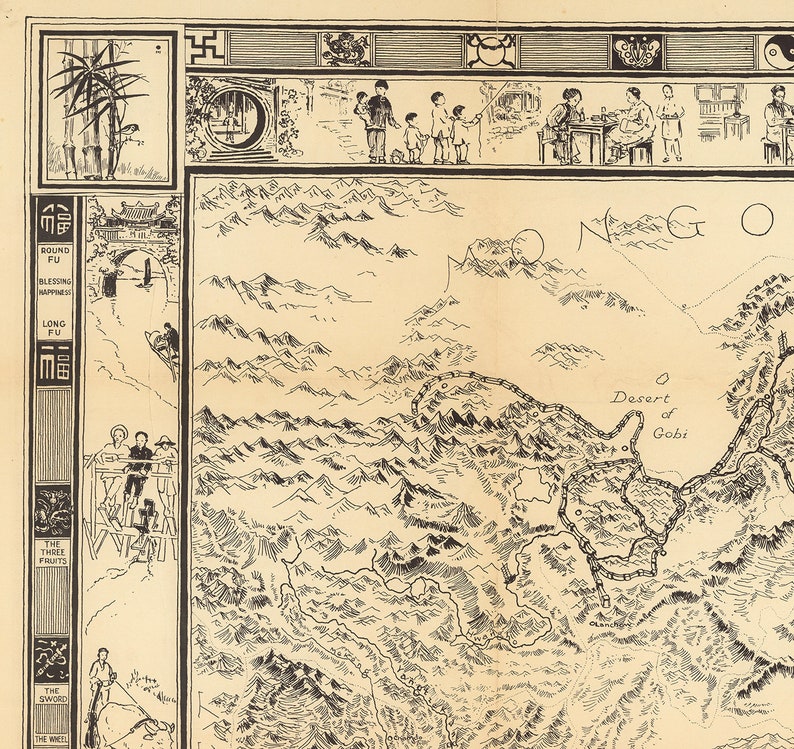 福
ROUND
FU
BLESSING
HAPPINESS
LONG
FU
福
THE
THREE
FRUITS
THE
SWORD
THE WHEEL
M O N G O
Desert
of
Gobi
Lanchow